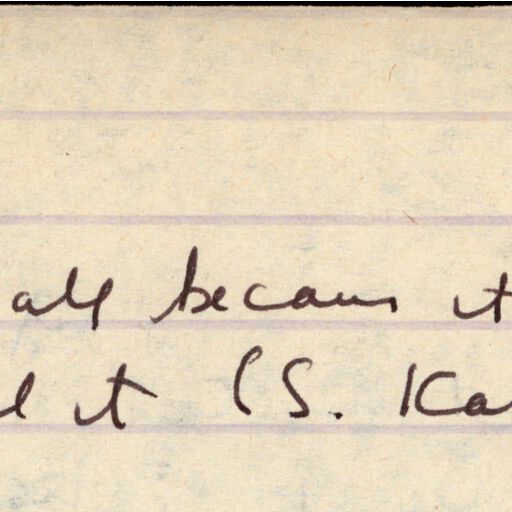 all because it
it (S. Ka